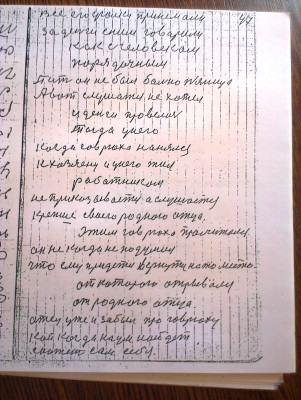 все его уроки принемали
за дети с ним говарили
как с человеком
порядочным
Пить он не был болно пяница
А вот слушать не хотел
и денги провелял
тогда у него
когда говроха нанялся
к хозяену и у него жил
работником
не приказывает а слушает
крепше своего родного отца.
Этим говроха
он не когда не подумал
что ему придети вернути на то место
от которого отрывали
от родного отца
отец уже и забыл про говроху
как когда на ум найдет
скажет сам себе
47